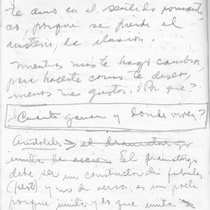 te amo en el sentido romanti-
co, porque se pierde el
misterio, la ilusion.
mientras más te hago cambiar
para hacerte como te deseo,
menos me gustas. ¿Por que?
¿Cuanto ganan y donde viven?
Aristoteles → el dramaturgo
imita la acción. El dramaturgo
debe ser un constructor de fabulas
y no de versos, es un poeta
porque imita y lo que imita